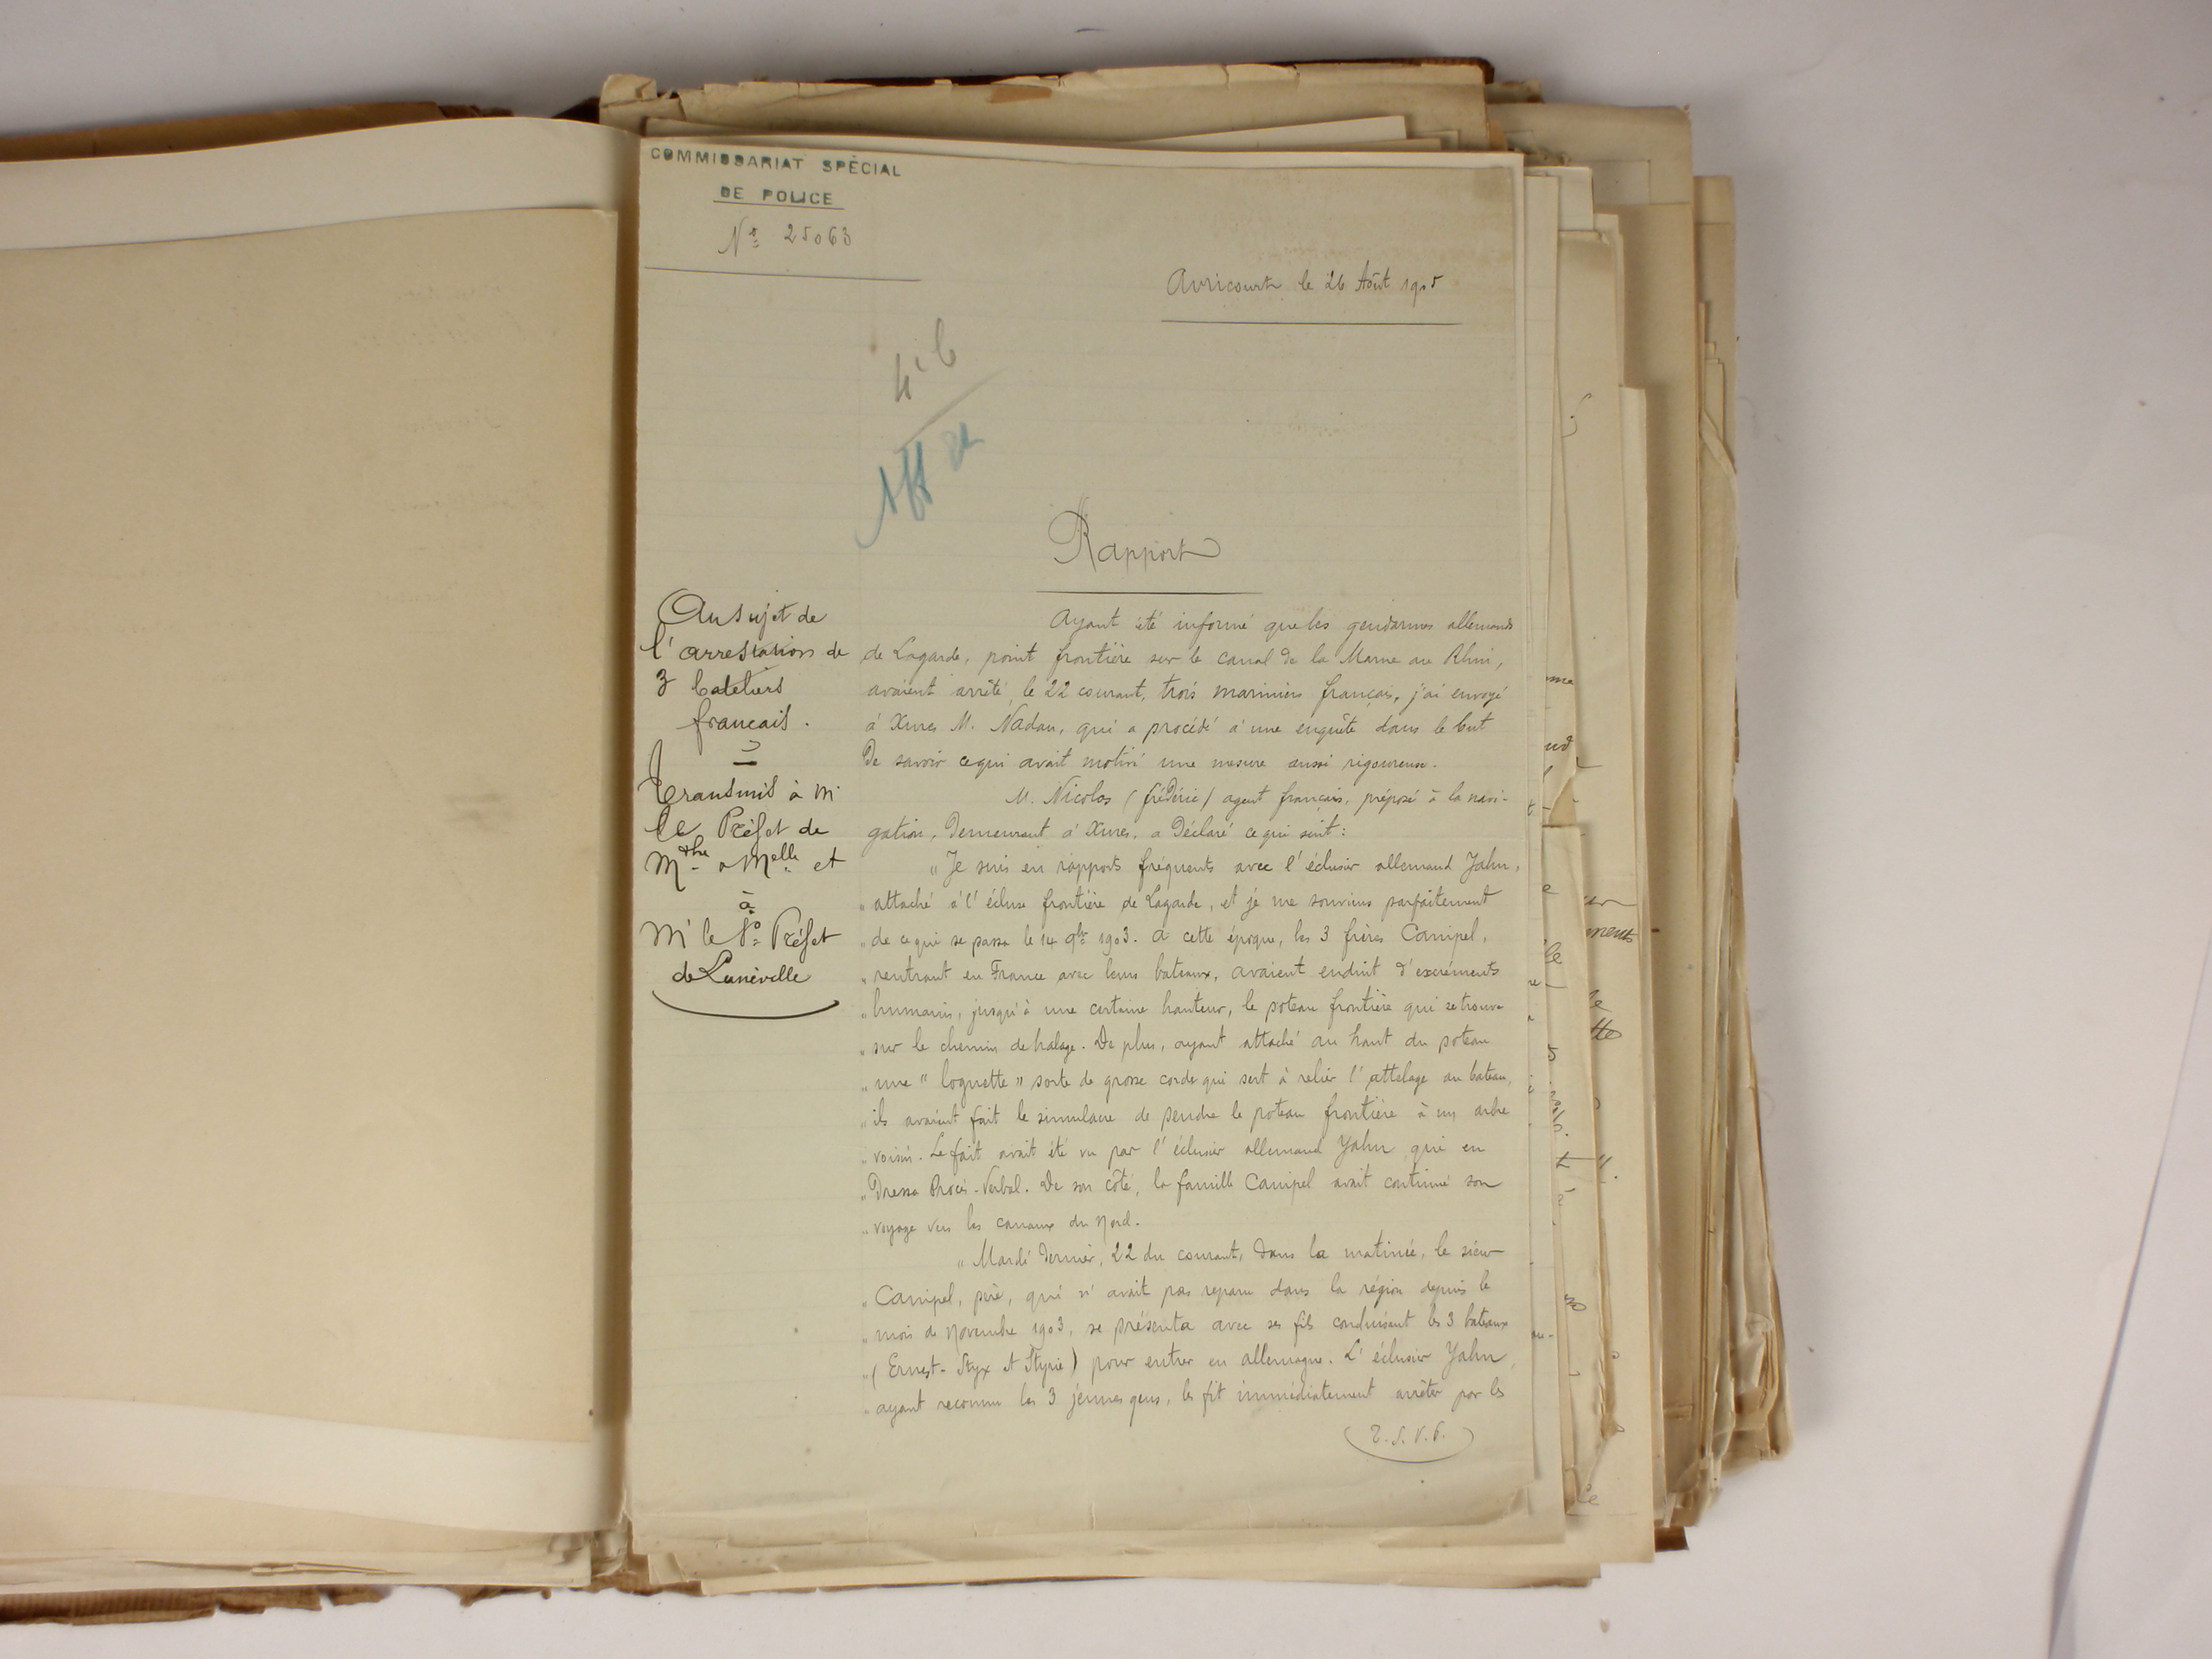 COMMISSARIAT SPÉCIAL
DE POLICE
No 25063
Avricourt le 26 Août 1905
Rapport
Au sujet de
l'arrestation de
3 bateliers
français.
Transmis à Mr
le Préfet de
Mthe & Melle et
à
Mr le So Préfet
de Lunéville
Ayant été informé que les gendarmes allemands
de Lagarde, point frontière sur le canal de la Marne au Rhin,
avaient arrêté, le 22 courant, trois mariniers français, j'ai envoyé
à Xures M. Nadau, qui a procédé à une enquête dans le but
de savoir ce qui avait motivé une mesure aussi rigoureuse.
M. Nicolas (frédéric) agent français, préposé à la navi-
gation, demeurant à Xures, a déclaré ce qui suit:
"Je suis en rapports fréquents avec l'éclusier allemand Jahn,
"attaché à l'écluse frontière de Lagarde, et je me souviens parfaitement
"de ce qui se passa le 14 9bre 1903. A cette époque, les 3 frères Canipel,
"rentrant en France avec leurs bateaux, avaient enduit d'excréments
"humains, jusqu'à une certaine hauteur, le poteau frontière qui se trouve
"sur le chemin de halage. De plus, ayant attaché au haut du poteau
"une "loguette" sorte de grosse corde qui sert à relier l'attelage au bateau,
"ils avaient fait le simulacre de pendre le poteau frontière à un arbre
"voisin. Le fait avait été vu par l'éclusier allemand Jahn qui en
"dressa Procès-Verbal. De son côté, la famille Canipel avait continué son
"voyage vers les canaux du Nord.
"Mardi dernier, 22 du courant, dans la matinée, le sieur
"Canipel, père, qui n'avait pas reparu dans la région depuis le
"mois de Novembre 1903, se présenta avec ses fils conduisant les 3 bateaux
"(Ernest - Styx et Styrie) pour entrer en allemagne. L'éclusier Jahn,
"ayant reconnu les 3 jeunes gens, les fit immédiatement arrêter par les
T.S.V.P.